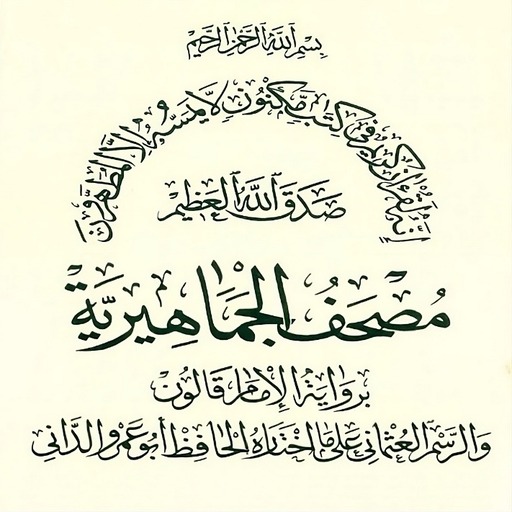 بِسْمِ اللَّهِ الرَّحْمَٰنِ الرَّحِيمِ
إِنَّهُ لَقُرْآنٌ كَرِيمٌ فِي كِتَابٍ مَّكْنُونٍ لَّا يَمَسُّهُ إِلَّا الْمُطَهَّرُونَ
صَدَقَ اللَّهُ الْعَظِيمُ
مُصْحَفُ الْجَمَاهِيرِيَّةِ
بِرِوَايَةِ الْإِمَامِ قَالُونَ
وَالرَّسْمِ الْعُثْمَانِيِّ عَلَى مَا اخْتَارَهُ الْحَافِظُ أَبُو عَمْرٍو الدَّانِي